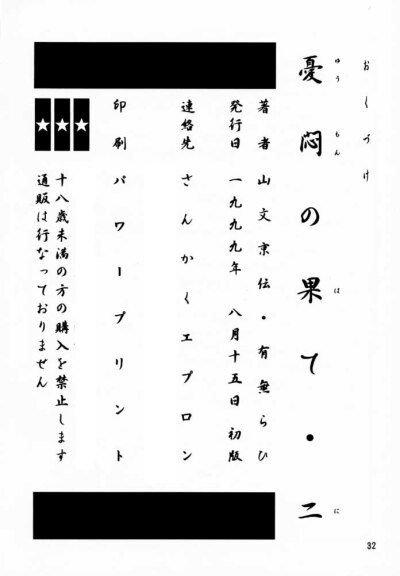 おしづけ
憂悶の果て・二
ゆうもん は に
著者 山文京伝・有無らひ
発行日 一九九九年 八月十五日 初版
連絡先 さんかくエプロン
印刷 パワープリント
十八歳未満の方の購入を禁止します
通販は行なっておりません
32